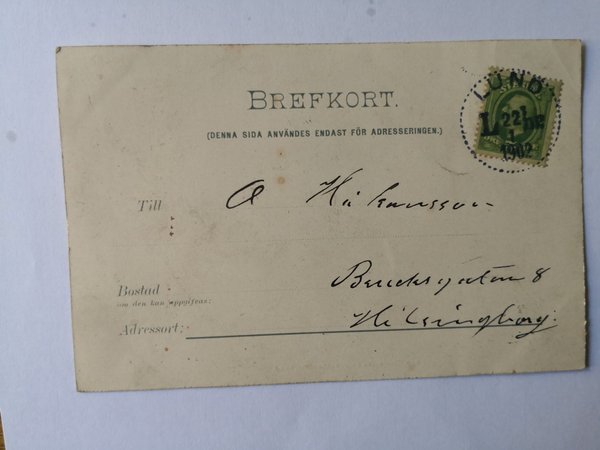 BREFKORT.
(DENNA SIDA ANVÄNDES ENDAST FÖR ADRESSERINGEN.)
LUND
22 1
1902
Till
A Håkansson
Bostad
om den kan uppgifvas:
8
Adressort:
Helsingborg.